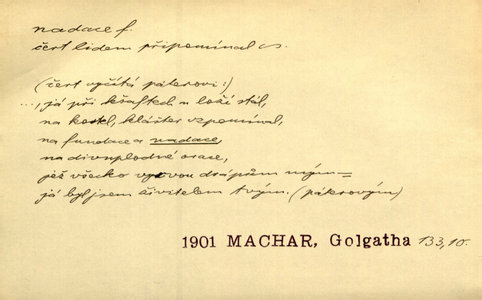 nadace f.
čert lidem připomínal s.
(čert vyčítá páterovi:)
..., já při kšaftech u loží stál,
na kostel, klášter vzpomínal,
na fundace a nadace,
na divuplodné orace,
jež všecko rvou drápům mým =
já byl jsem živitelem tvým. (páterovým)
1901 MACHAR, Golgatha 133,10.